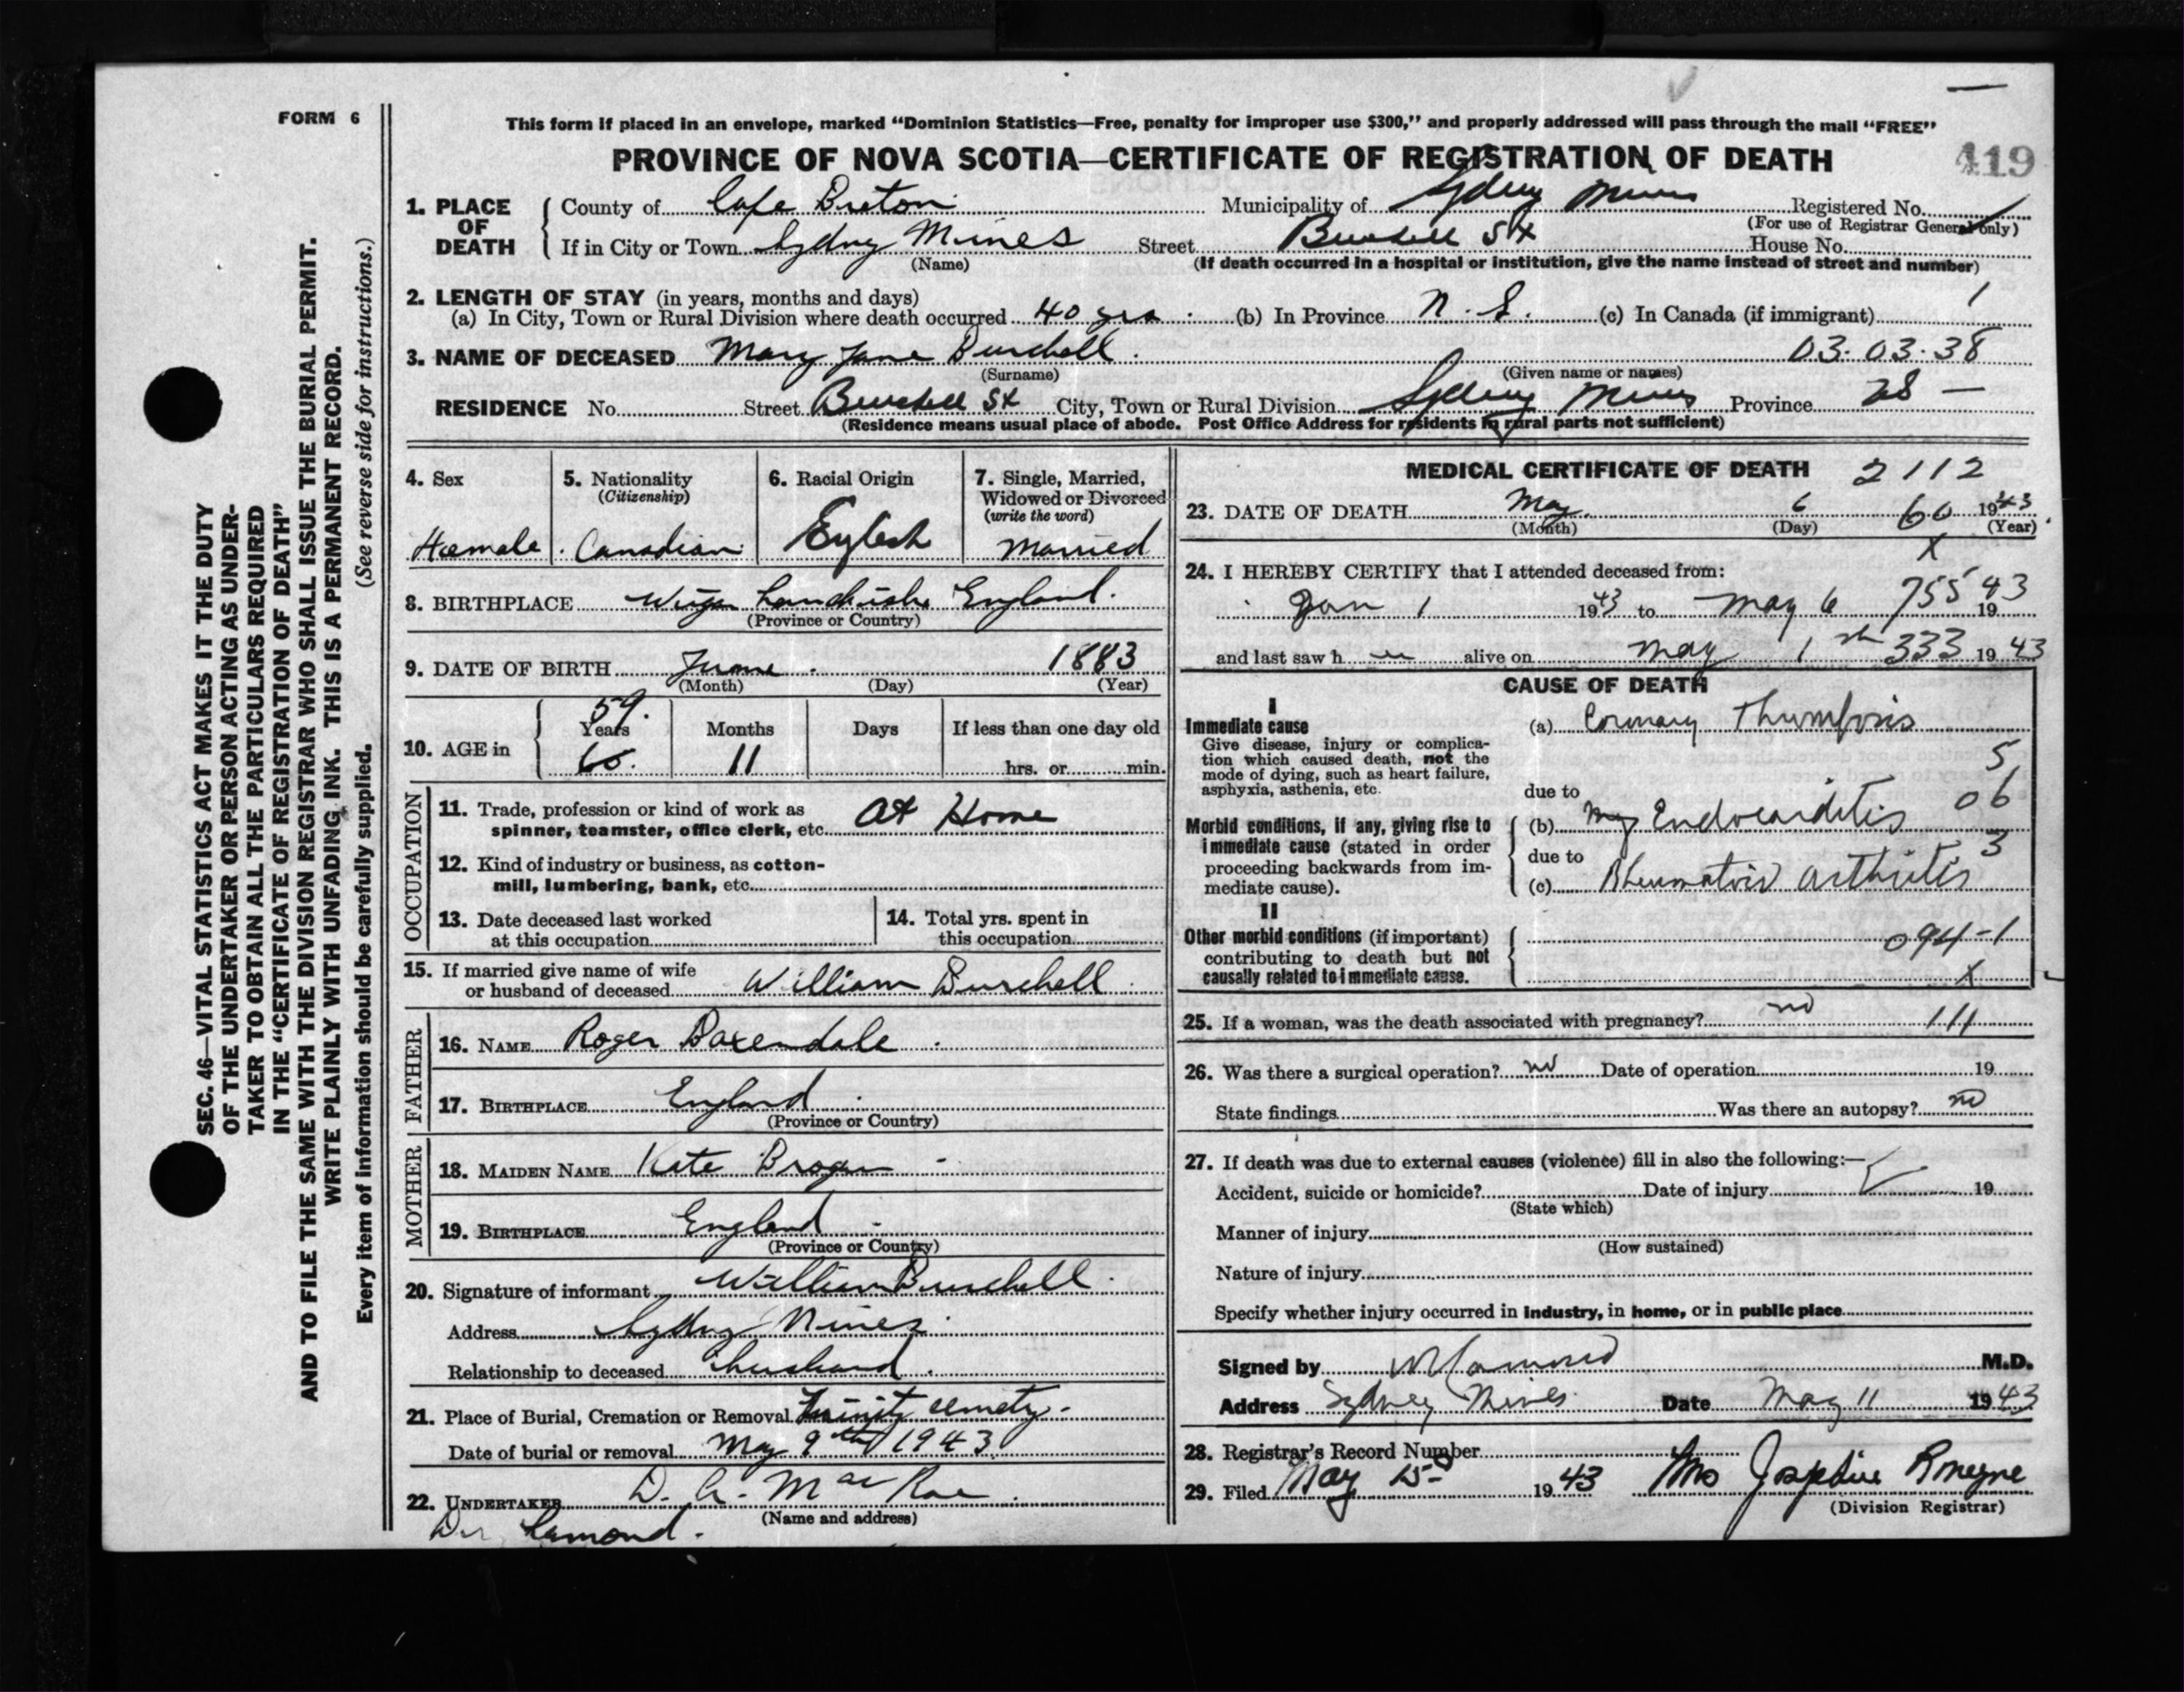 FORM 6
This form if placed in an envelope, marked “Dominion Statistics—Free, penalty for improper use $300,” and properly addressed will pass through the mail “FREE”
PROVINCE OF NOVA SCOTIA—CERTIFICATE OF REGISTRATION OF DEATH 419
1. PLACE OF DEATH
County of Cape Breton Municipality of Sydney Mines Registered No.
(For use of Registrar General only)
If in City or Town Sydney Mines Street Burchell St House No.
(Name) (If death occurred in a hospital or institution, give the name instead of street and number)
2. LENGTH OF STAY (in years, months and days)
(a) In City, Town or Rural Division where death occurred 40 yrs. (b) In Province N. S. (c) In Canada (if immigrant) 1
3. NAME OF DECEASED Mary Jane Burchell. 03.03.38
(Surname) (Given name or names)
RESIDENCE No. Street Burchell St City, Town or Rural Division Sydney Mines Province 28 —
(Residence means usual place of abode. Post Office Address for residents in rural parts not sufficient)
SEC. 46—VITAL STATISTICS ACT MAKES IT THE DUTY
OF THE UNDERTAKER OR PERSON ACTING AS UNDER-
TAKER TO OBTAIN ALL THE PARTICULARS REQUIRED
IN THE “CERTIFICATE OF REGISTRATION OF DEATH”
AND TO FILE THE SAME WITH THE DIVISION REGISTRAR WHO SHALL ISSUE THE BURIAL PERMIT.
WRITE PLAINLY WITH UNFADING INK. THIS IS A PERMANENT RECORD.
Every item of information should be carefully supplied. (See reverse side for instructions.)
4. Sex
Female.
5. Nationality
(Citizenship)
Canadian
6. Racial Origin
7. Single, Married,
Widowed or Divorced
(write the word)
Married
8. BIRTHPLACE Wigan Lancashire England.
(Province or Country)
9. DATE OF BIRTH June. 1883
(Month) (Day) (Year)
10. AGE in
59.
Years Months Days If less than one day old
60. 11 hrs. or min.
OCCUPATION
11. Trade, profession or kind of work as
spinner, teamster, office clerk, etc. At Home
12. Kind of industry or business, as cotton-
mill, lumbering, bank, etc.
13. Date deceased last worked
at this occupation
14. Total yrs. spent in
this occupation
15. If married give name of wife
or husband of deceased William Burchell
FATHER
16. NAME Roger Baxendale.
17. BIRTHPLACE England.
(Province or Country)
MOTHER
18. MAIDEN NAME Kate Brogan -
19. BIRTHPLACE England -
(Province or Country)
20. Signature of informant William Burchell.
Address Sydney Mines.
Relationship to deceased husband.
21. Place of Burial, Cremation or Removal Trinity cemety.
Date of burial or removal May 9th 1943
22. UNDERTAKER D. A. MacRae.
(Name and address)
Dr Lamond.
MEDICAL CERTIFICATE OF DEATH 2112
23. DATE OF DEATH May 6 60 1943
(Month) (Day) (Year)
X
24. I HEREBY CERTIFY that I attended deceased from:
Jan 1 1943 to May 6 755 1943
and last saw h er alive on May 1 st 333 1943
CAUSE OF DEATH
I
Immediate cause
Give disease, injury or complica-
tion which caused death, not the
mode of dying, such as heart failure,
asphyxia, asthenia, etc.
(a) Coronary Thrombosis
5
due to
Morbid conditions, if any, giving rise to
immediate cause (stated in order
proceeding backwards from im-
mediate cause).
(b) Endocarditis 06
due to 3
(c) Rheumatoid Arthritis
II
Other morbid conditions (if important)
contributing to death but not
causally related to immediate cause.
094-1
X
25. If a woman, was the death associated with pregnancy? no 111
26. Was there a surgical operation? no Date of operation 19
State findings Was there an autopsy? no
27. If death was due to external causes (violence) fill in also the following:—
Accident, suicide or homicide? Date of injury 19
(State which)
Manner of injury
(How sustained)
Nature of injury
Specify whether injury occurred in industry, in home, or in public place
Signed by Lamond M.D.
Address Sydney Mines Date May 11 1943
28. Registrar's Record Number
29. Filed May 15 1943 Mrs Josephine
(Division Registrar)